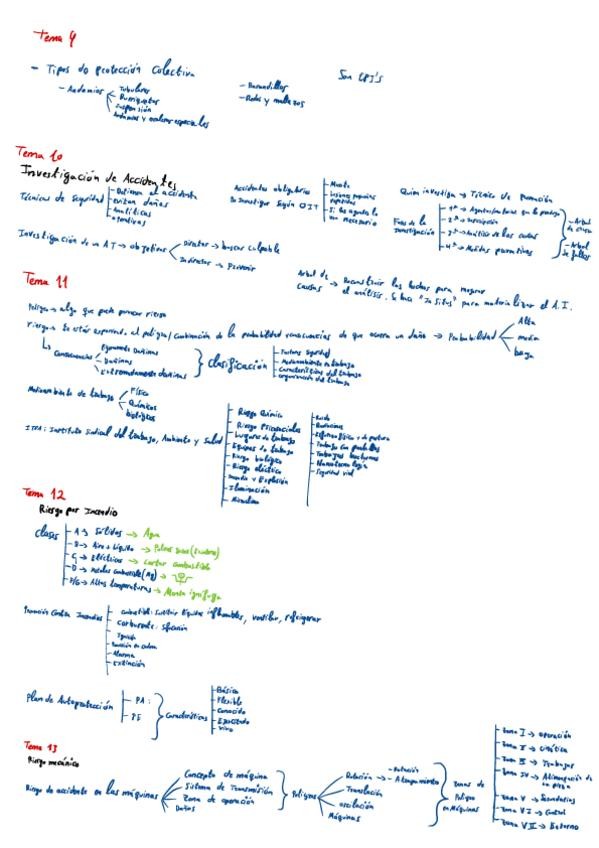 Tema 9
- Tipos de protección Colectiva
Son EPJ's
- Andamios
Tubulares
Borriquetas
Suspensión
Andamios y escaleras especiales
- Barandillas
- Redes y mallazos
Tema 10
Investigación de Accidentes
Técnicas de Seguridad
- evitan daños
- Analíticas
- operativas
Accidentes obligatorios
Investigar Según OIT
- Muerte
- Lesiones
repetidas
necesario
Quien investiga → Técnico de Prevención
Fases de la
investigación
- 2ª →
- 3ª → Análisis de las causas
- 4ª → Medidas preventivas
- Arbol
de causa
- Arbol
de fallos
Investigación de un AT → objetivos
Director → buscar Culpable
Indirector → Prevenir
Arbol de
causas → Reconstruir los hechos para mejorar
el análisis. Se hace "In Situs" para materializar el A.I.
Tema 11
Peligro → algo que puede provocar riesgo
riesgo → Se estás exponiendo al peligro/Combinación de la probabilidad consecuencias de que ocurra un daño → Probabilidad
Alta
media
baja
Consecuencias
Ligeramente Dañinas
- Dañinas
Extremadamente dañinas
Clasificación
- Factores Seguridad
- Medioambiente de trabajo
- Características del trabajo
- organización del trabajo
Medioambiente de trabajo
Físico
Químicos
biológicos
: Instituto Sindical del trabajo, Ambiente y Salud
- Riesgo Químico
- Riesgo Psicosociales
- Lugares de trabajo
- Equipos de trabajo
- Riesgo biológico
- Riesgo eléctrico
- Incendio y Explosión
- Iluminación
- Ruido
- Radiaciones
- Esfuerzo físico y de postura
- Trabajo con pantallas
- Trabajos nocturnos
- Nanotecnología
- Seguridad vial
Tema 12
Riesgo por Incendio
clases
- A → Sólidos → Agua
- B → Líquido → Polvos
- C → Eléctricos → Cortar combustible
- D → Metales Combustible (Mg) →
- F/G → Altas temperaturas → Manta ignífuga
Protección Contra Incendios
- combustible: Sustituir líquidos inflamables, ventilar, refrigerar
- Carburante:
- Ignición
- Reacción en cadena
- Alarma
- Extinción
Plan de Autoprotección
- PA:
- PE
Características
- Básico
- Flexible
- Conocido
- Ejercitado
- Vivo
Tema 13
Riesgo mecánico
Riesgo de accidente en las máquinas
Concepto de máquina
- Sistema de Transmisión
Zona de operación
Datos
Peligros
Rotación → - Rotación
- Atrapamiento
Translación
oscilación
Máquinas
Zonas de
Peligro
en Máquinas
- Zona I → operación
- Zona II → Cinética
- Zona III → Trabajos
- Zona IV → Alimentación de
la pieza
- Zona V → Secundarios
- Zona VI → Control
- Zona VII → Entorno